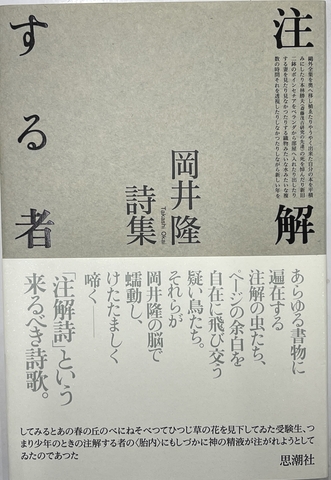 注解
する者
岡井隆
詩集
Takashi Okai
あらゆる書物に
遍在する
注解の虫たち、
ページの余白を
自在に飛び交う
疑い鳥たち。
それらが
岡井隆の脳で
蠕動し、
けたたましく
啼く——
「注解詩」という
来るべき詩歌。
してみるとあの春の丘のべにねそべつてひつじ草の花を見下してゐた受験生、つ
まり少年のときの注解する者の〈胎内〉にもしづかに神の精液が注がれようとして
ゐたのであつた
思潮社